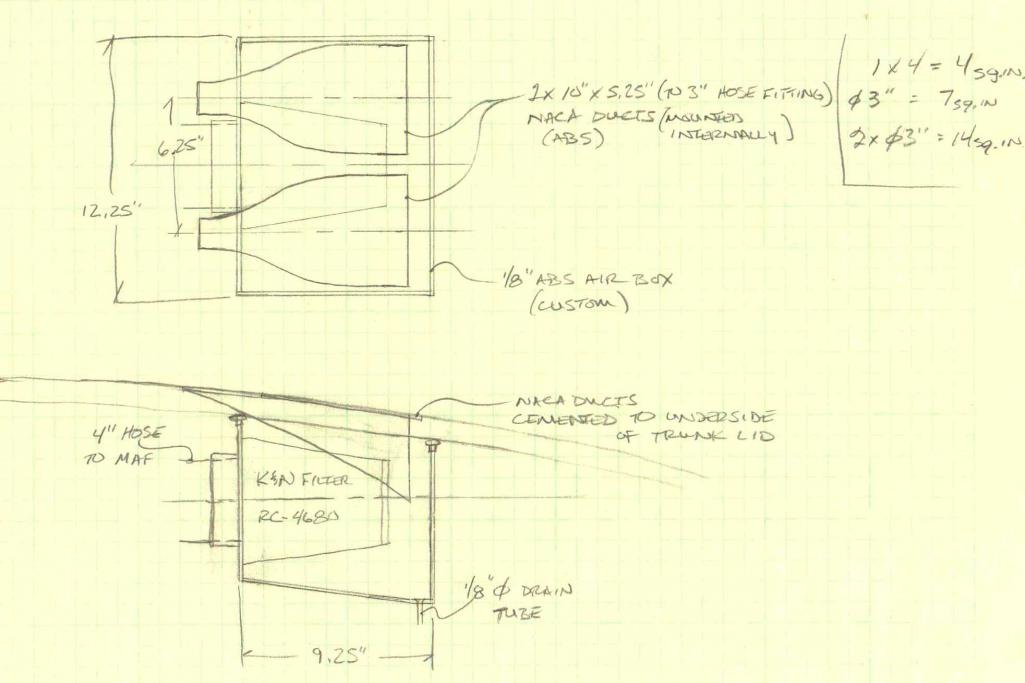 2x 10" x 5.25" (TO 3" HOSE FITTING)
NACA DUCTS (MOUNTED
(ABS) INTERNALLY)
1 x 4 = 4 SQ.IN.
ϕ3" = 7 SQ.IN
2x ϕ3" = 14 SQ.IN.
6.25"
12.25"
1/8" ABS AIR BOX
(CUSTOM)
NACA DUCTS
CEMENTED TO UNDERSIDE
OF TRUNK LID
4" HOSE
TO MAF
K&N FILTER
RC-4680
1/8" ϕ DRAIN
TUBE
9.25"